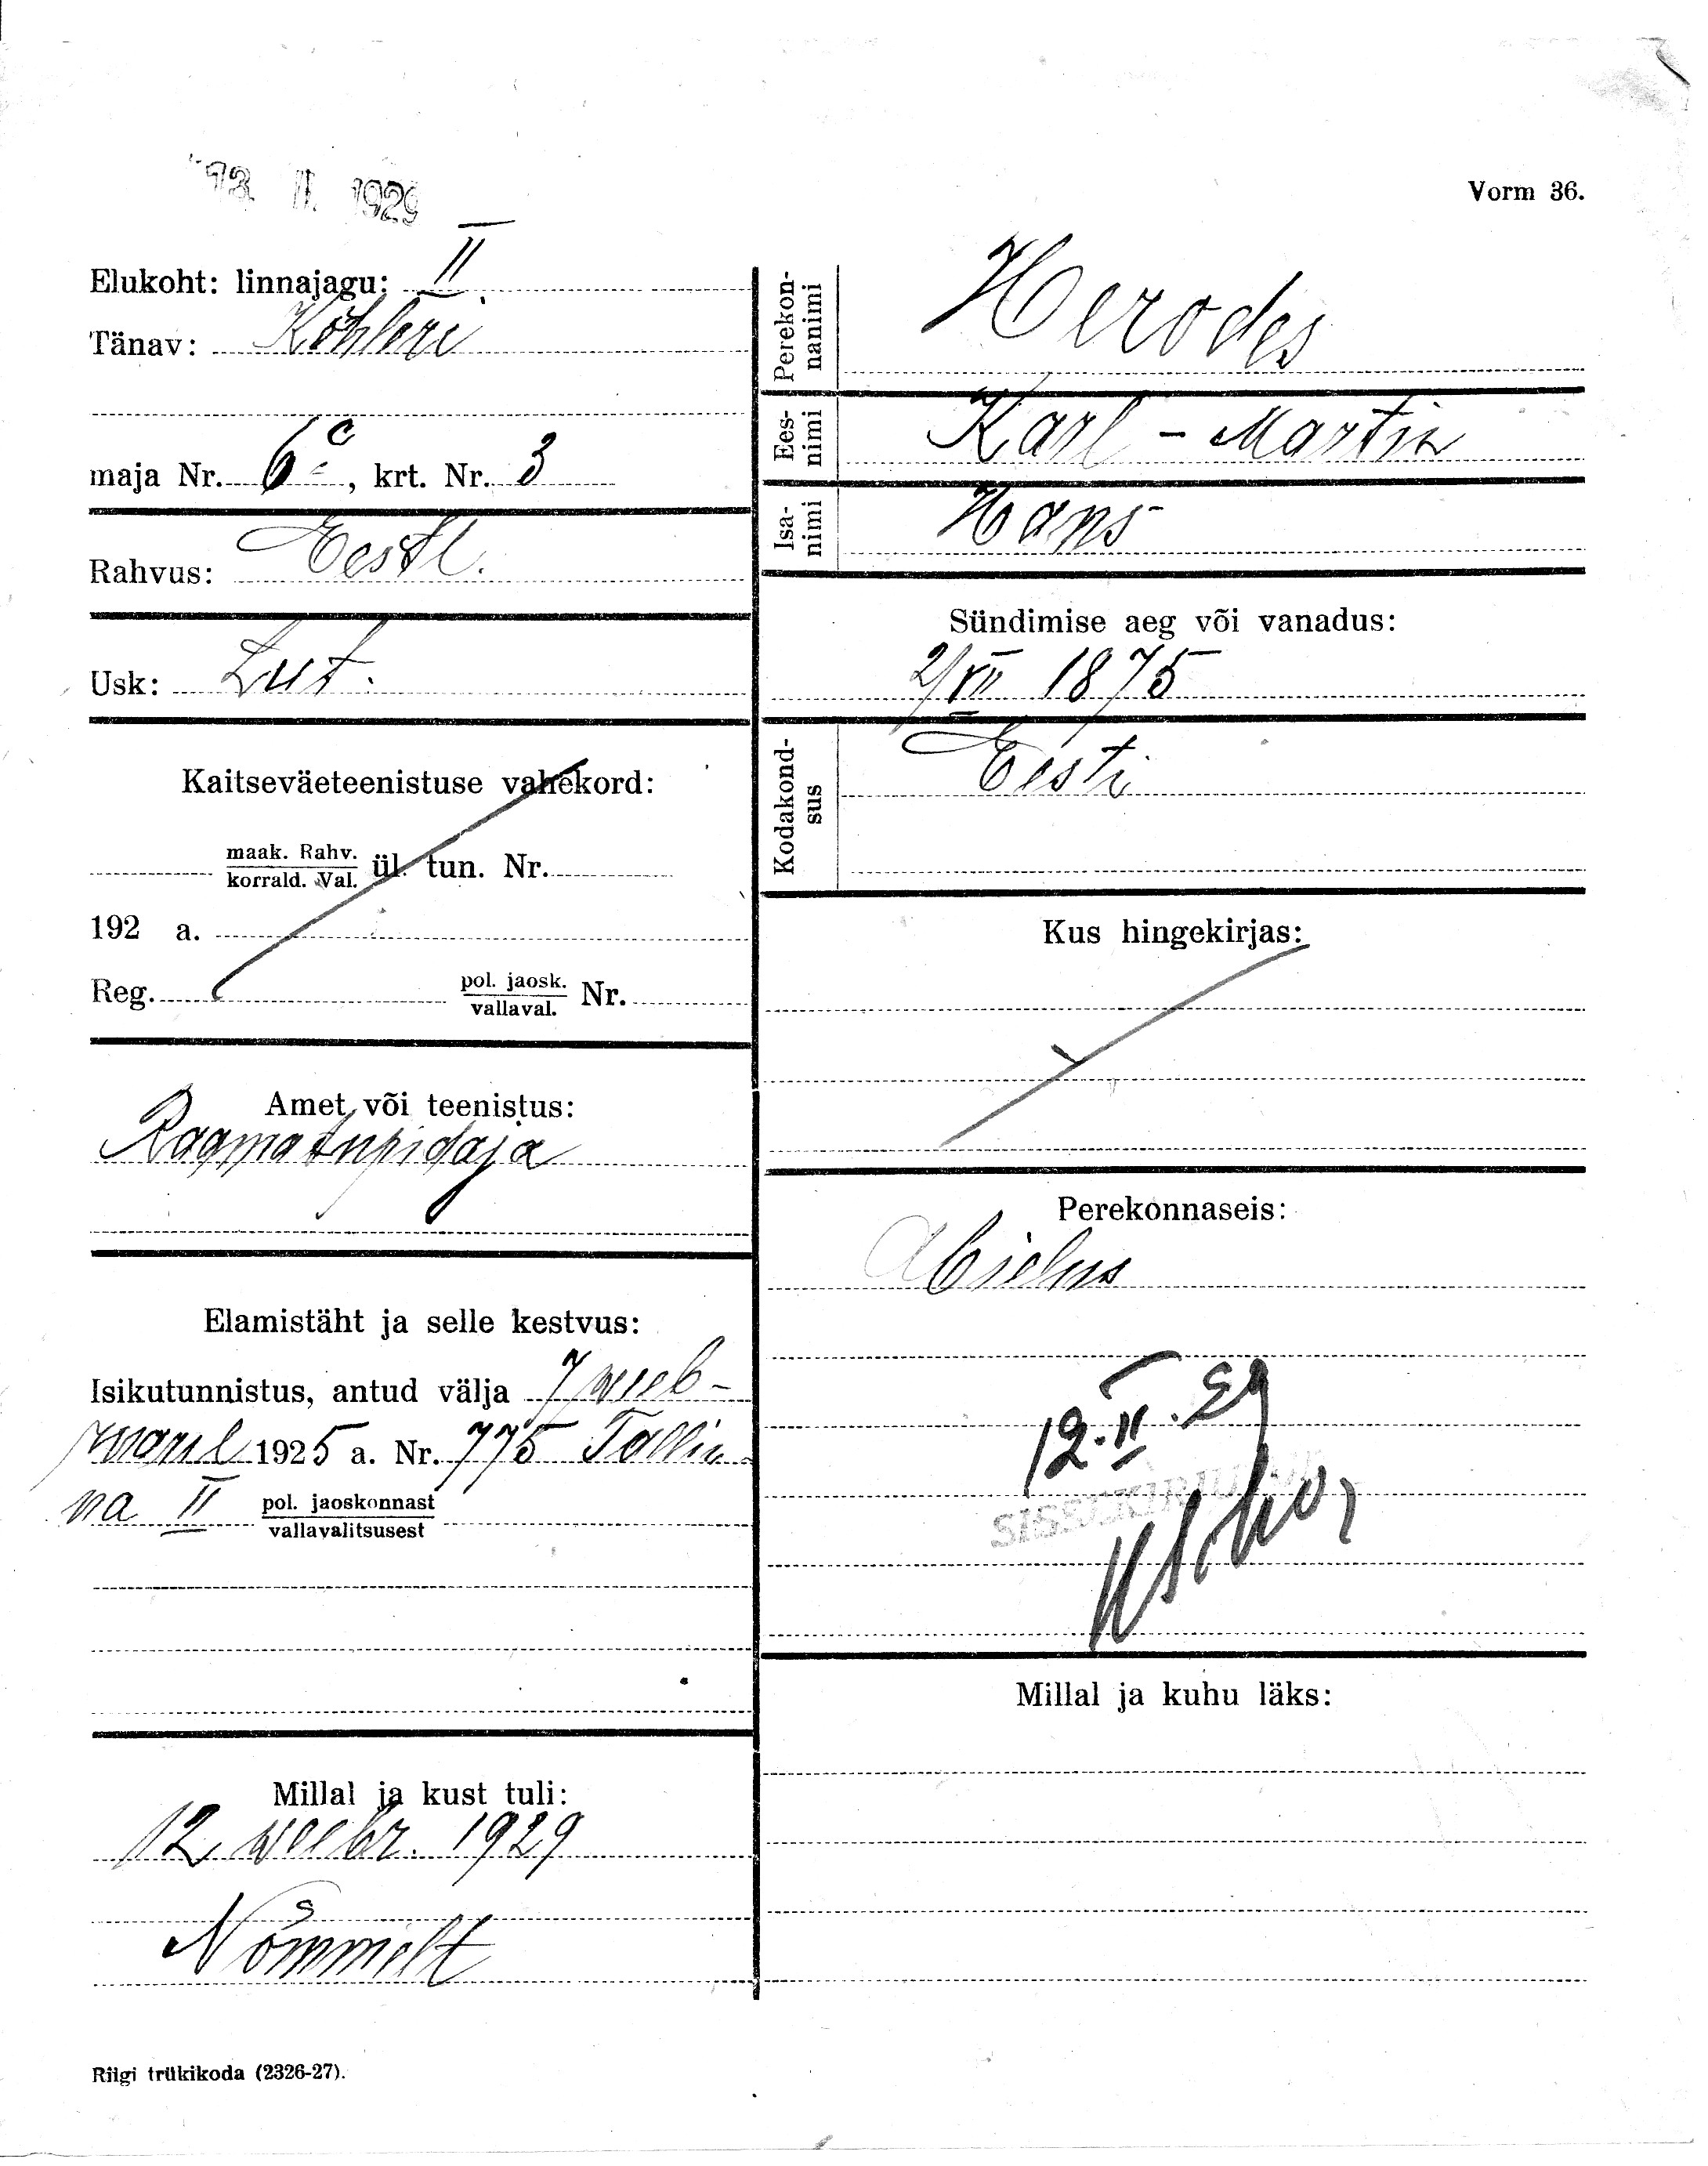 13. II. 1929
Vorm 36.
Elukoht: linnajagu: II
Tänav: Köhleri
maja Nr. 6c, krt. Nr. 3
Rahvus: Eestl.
Usk: Lut.
Kaitseväeteenistuse vahekord:
maak. Rahv.
korrald. Val. ül. tun. Nr.
192 a.
Reg. pol. jaosk. Nr.
vallaval.
Amet või teenistus:
Raamatupidaja
Elamistäht ja selle kestvus:
Isikutunnistus, antud välja 7 weeb-
ruaril 1925 a. Nr. 775 Tallin
na II pol. jaoskonnast
vallavalitsusest
Millal ja kust tuli:
12 weebr. 1929
Nõmmelt
Riigi trükikoda (2326-27).
Perekon-
nanimi Herodes
Ees-
nimi Karl - Martin
Isa-
nimi Hans
Sündimise aeg või vanadus:
2/VII 1875
Kodakond-
sus Eesti
Kus hingekirjas:
Perekonnaseis:
Abielus
12. II. 29
Millal ja kuhu läks: